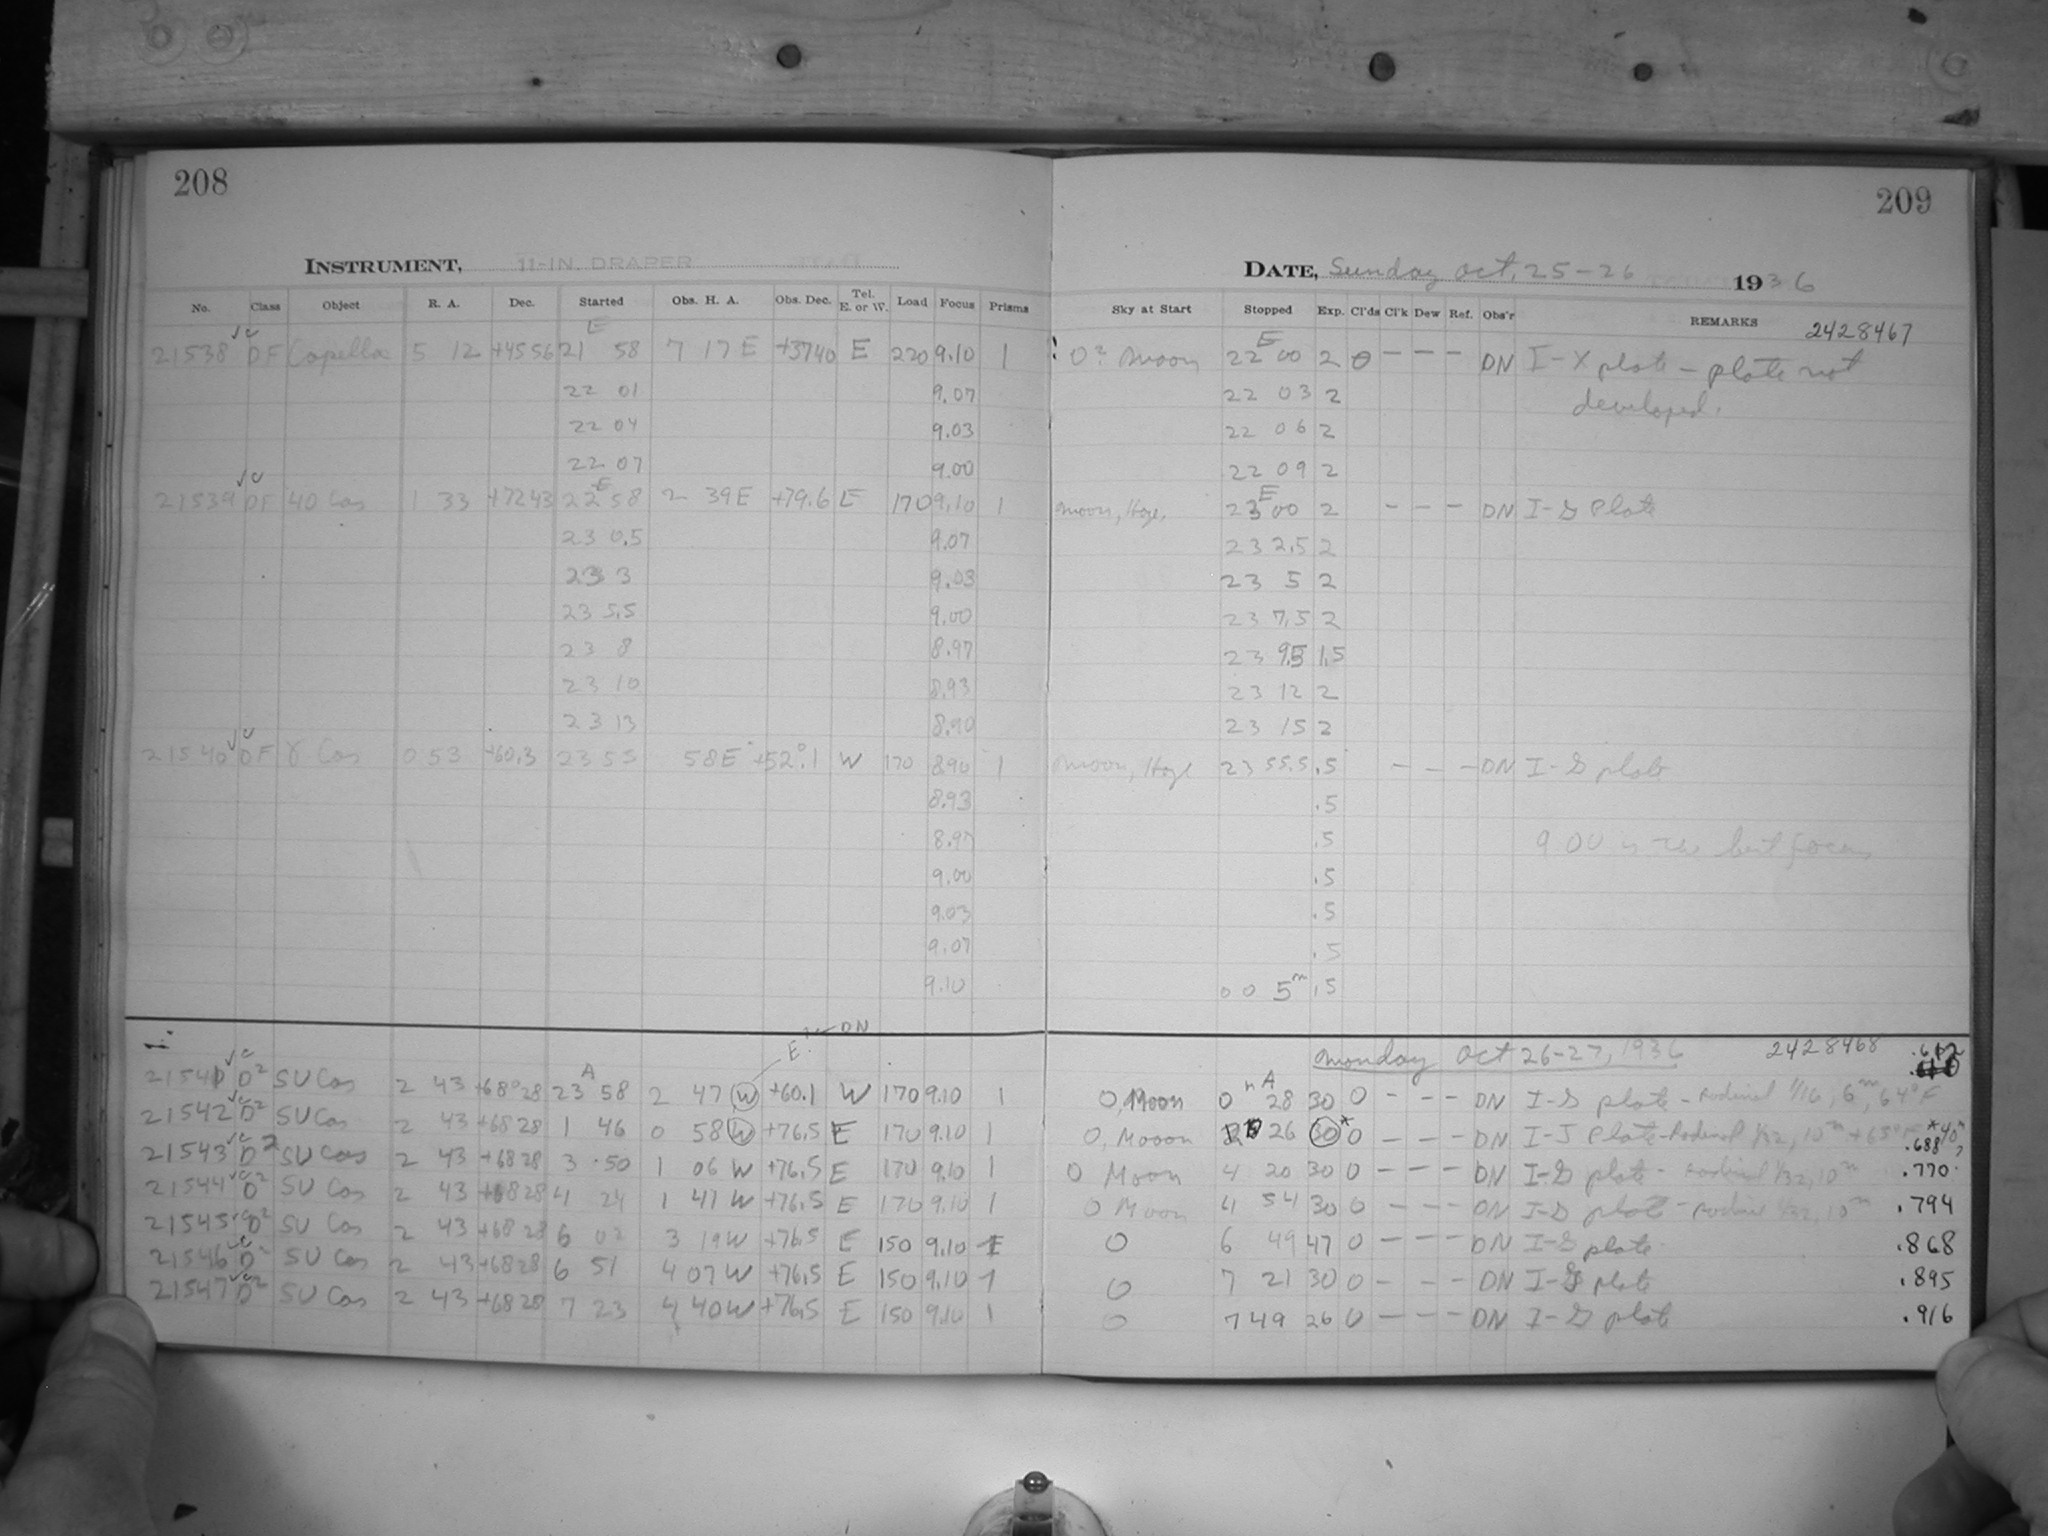 208
209
INSTRUMENT, 11-IN. DRAPER
DATE, Sunday Oct. 25-26 1936
No. Class Object R. A. Dec. Started Obs. H. A. Obs. Dec. Tel. E. or W. Load Focus Prisms Sky at Start Stopped Exp. Cl'ds Cl'k Dew Ref. Obs'r REMARKS 2428467
E E
21538 DF Capella 5 12 +4556 21 58 7 17 E +3740 E 220 9.10 1 0? Moon 22 00 2 0 - - - DN I-X plate - plate not
22 01 9.07 22 03 2 developed.
22 04 9.03 22 06 2
22 07 9.00 22 09 2
E E
21539 DF 40 Cas 1 33 +7243 22 58 2 39 E +79.6 E 170 9.10 1 Moon, Haze, 23 00 2 - - - DN I-G Plate
23 0.5 9.07 23 2.5 2
23 3 9.03 23 5 2
23 5.5 9.00 23 7.5 2
23 8 8.97 23 9.5 1.5
23 10 8.93 23 12 2
23 13 8.90 23 15 2
21540 DF γ Cas 0 53 +60.3 23 55 58 E +52°.1 W 170 8.90 1 Moon, Haze 23 55.5 .5 - - - DN I-G plate
8.93 .5
8.97 .5 9.00 is the best focus
9.00 .5
9.03 .5
9.07 .5
9.10 0 0 5m .5
E. DN
Monday Oct 26-27, 1936 2428468 .612
21541 D2 SU Cas 2 43 +68°28 23 A 58 2 47 W +60.1 W 170 9.10 1 0, Moon 0 h A 28 30 0 - - - DN I-G plate - rodinal 1/16, 6m, 64°F
21542 D2 SU Cas 2 43 +68 28 1 46 0 58 W +76.5 E 170 9.10 1 0, Mooon 26 30* 0 - - - DN I-J Plate - Rodinal 1/32, 10m *40m .688
21543 D2 SU Cas 2 43 +68 28 3 50 1 06 W +76.5 E 170 9.10 1 0 Moon 4 20 30 0 - - - DN I-G plate - rodinal 1/32, 10m .770
21544 D2 SU Cas 2 43 +68 28 4 24 1 41 W +76.5 E 170 9.10 1 0 Moon 4 54 30 0 - - - DN I-G plate - rodinal 1/32, 10m .794
21545 D2 SU Cas 2 43 +68 28 6 02 3 19 W +76.5 E 150 9.10 1 0 6 49 47 0 - - - DN I-G plate .868
21546 D2 SU Cas 2 43 +68 28 6 51 4 07 W +76.5 E 150 9.10 1 0 7 21 30 0 - - - DN I-G plate .895
21547 D2 SU Cas 2 43 +68 28 7 23 4 40 W +76.5 E 150 9.10 1 0 7 49 26 0 - - - DN I-G plate .916